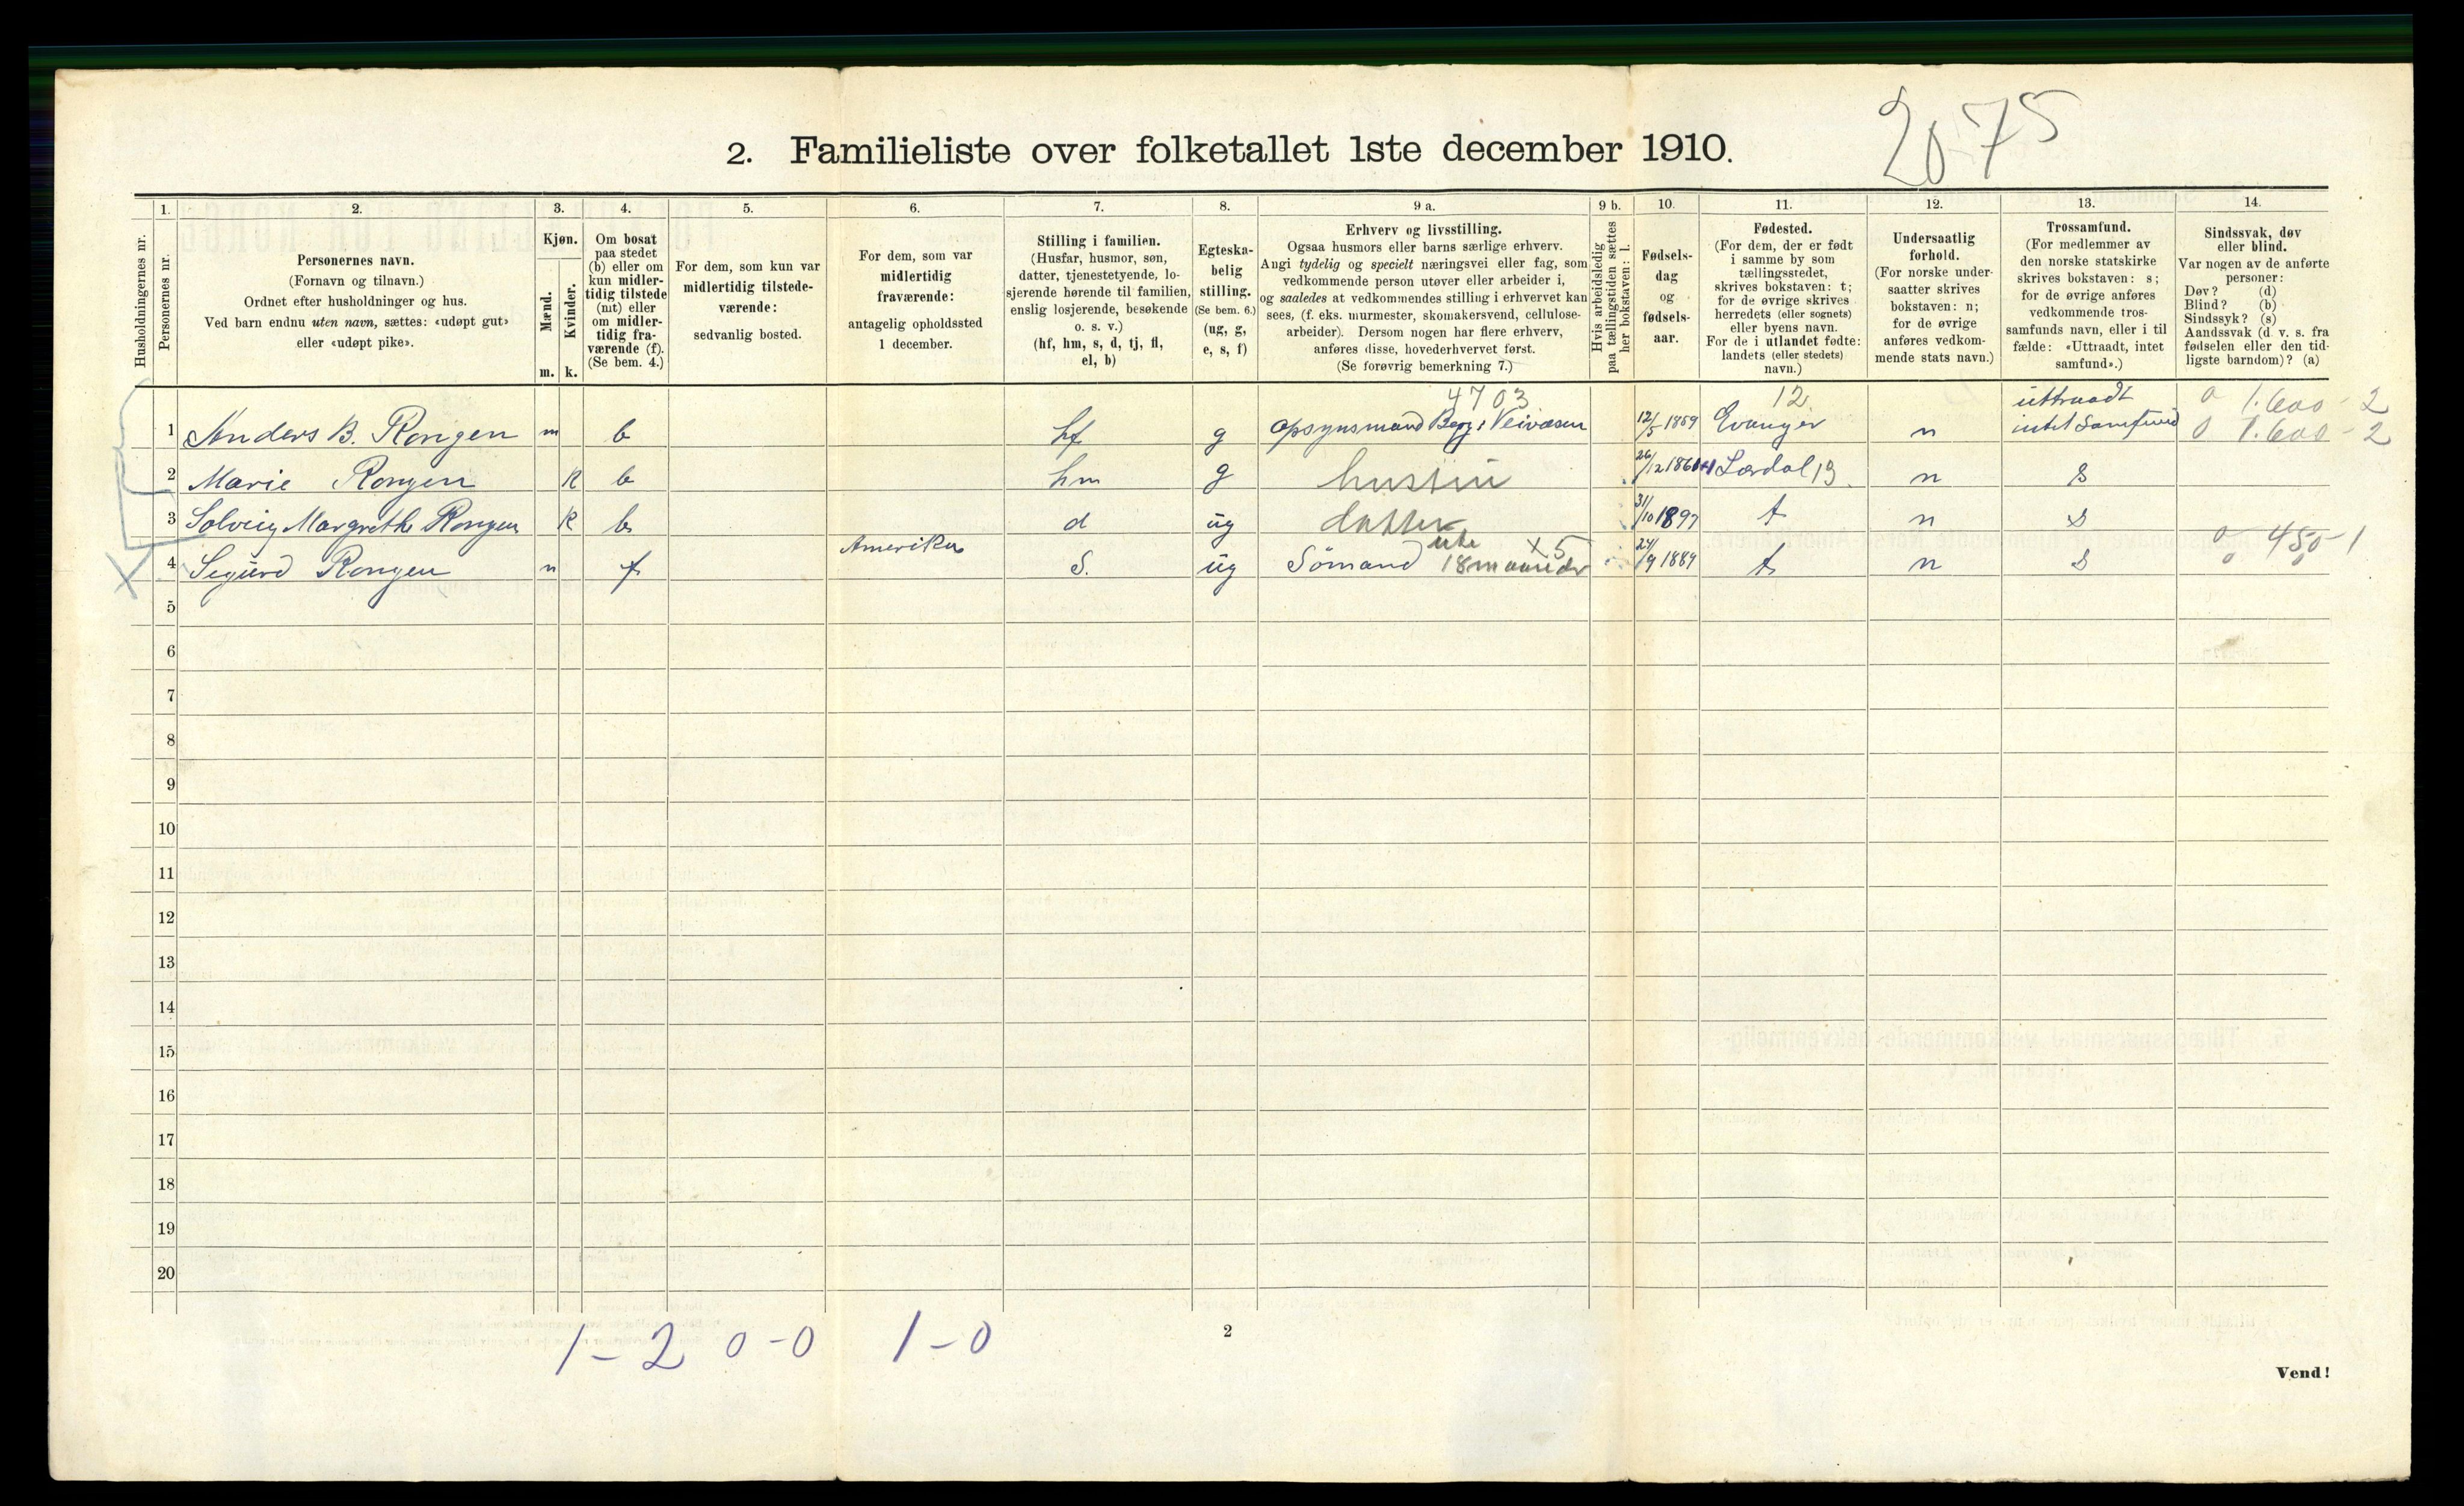 2075
2. Familieliste over folketallet 1ste december 1910.
Husholdningernes nr.
1.
Personernes nr.
2.
Personernes navn.
(Fornavn og tilnavn.)
Ordnet efter husholdninger og hus.
Ved barn endnu uten navn, sættes: «udøpt gut»
eller «udøpt pike».
3.
Kjøn.
Mænd.
Kvinder.
m. k.
4.
Om bosat
paa stedet
(b) eller om
kun midler-
tidig tilstede
(mt) eller
om midler-
tidig fra-
værende (f).
(Se bem. 4.)
5.
For dem, som kun var
midlertidig tilstede-
værende:
sedvanlig bosted.
6.
For dem, som var
midlertidig
fraværende:
antagelig opholdssted
1 december.
7.
Stilling i familien.
(Husfar, husmor, søn,
datter, tjenestetyende, lo-
sjerende hørende til familien,
enslig losjerende, besøkende
o. s. v.)
(hf, hm, s, d, tj, fl,
el, b)
8.
Egteska-
belig
stilling.
(Se bem. 6.)
(ug, g,
e, s, f)
9 a.
Erhverv og livsstilling.
Ogsaa husmors eller barns særlige erhverv.
Angi tydelig og specielt næringsvei eller fag, som
vedkommende person utøver eller arbeider i,
og saaledes at vedkommendes stilling i erhvervet kan
sees, (f. eks. murmester, skomakersvend, cellulose-
arbeider). Dersom nogen har flere erhverv,
anføres disse, hovederhvervet først.
(Se forøvrig bemerkning 7.)
9 b.
Hvis arbeidsledig
paa tællingstiden sættes
her bokstaven: l.
10.
Fødsels-
dag
og
fødsels-
aar.
11.
Fødested.
(For dem, der er født
i samme by som
tællingsstedet,
skrives bokstaven: t;
for de øvrige skrives
herredets (eller sognets)
eller byens navn.
For de i utlandet fødte:
landets (eller stedets)
navn.)
12.
Undersaatlig
forhold.
(For norske under-
saatter skrives
bokstaven: n;
for de øvrige
anføres vedkom-
mende stats navn.)
13.
Trossamfund.
(For medlemmer av
den norske statskirke
skrives bokstaven: s;
for de øvrige anføres
vedkommende tros-
samfunds navn, eller i til
fælde: «Uttraadt, intet
samfund».)
14.
Sindssvak, døv
eller blind.
Var nogen av de anførte
personer:
Døv? (d)
Blind? (b)
Sindssyk? (s)
Aandssvak (d. v. s. fra
fødselen eller den tid-
ligste barndom)? (a)
4703 12 uttraadt 0 1.600-2
1 Anders B. Rongen m b hf g Opsynsmand Berg: Veivæsen 12/5 1859 Evanger n intet Samfund 0 1.600-2
2 Marie Rongen k b hm g hustru 26/12 Lærdal 19 n s
3 Solveig Margrethe Rongen k b d ug datter 31/10 1897 t n s
Amerika ute x5 0 450-1
4 Sigurd Rongen m f s. ug Sömand 18 maaneder 24/9 1889 t n s 0 0
5
6
7
8
9
10
11
12
13
14
15
16
17
18
19
20
1-2 0-0 1-0
2
Vend!